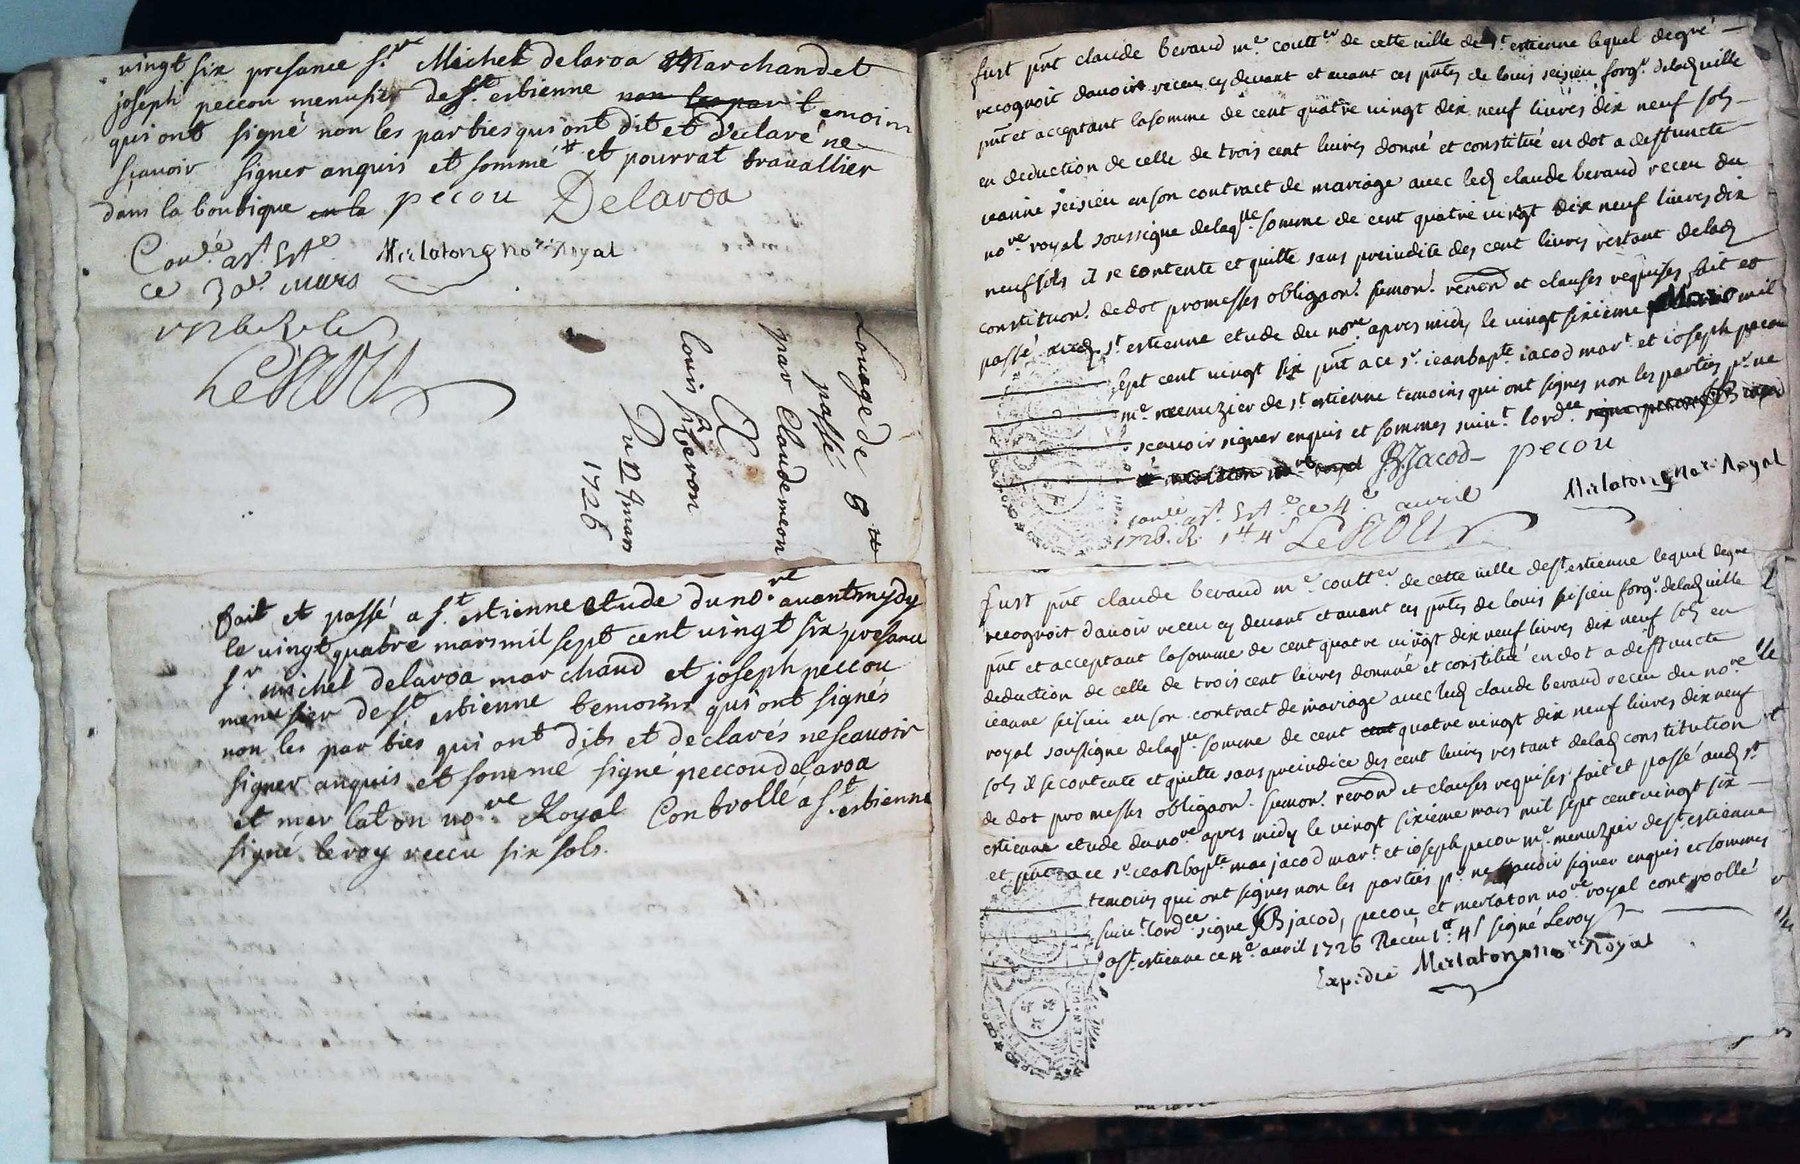 vingt six presance sr. Michel delaroa Marchand et
joseph peccou menusier de st. estienne non les par temoins
qui ont signé non les parties qui ont dit et déclaré ne
sçavoir signer anquis et sommé et pourrat travallier
dans la boutique en la pecou Delaroa
Con.lé a st. Est.e Merlaton no.re Royal
ce 30e. mars
Leroy
Louage de 8 lt
passé
par Claude meon
A
Louis
Du 24 mars
1726
fait et passé a st. estienne etude du no.re avant mydy
le vingt quatre mars mil sept cent vingt six presance
sr. michel delaroa marchand et joseph peccou
menusier de st. estienne temoins qui ont signés
non les parties qui ont dits et declarés ne scavoir
signer anquis et sommé signé peccou delaroa
et merlaton no.re Royal Controllé a st. estienne
signé leroy receu six sols.
fust pnt claude beraud me. coutt.er de cette ville de st. estienne lequel de gré
recognoit d'avoir receu cy devant et avant ces pntes de louis seisieu forgr. de lad ville
pnt et acceptant la somme de cent quatre vingt dix neuf livres dix neuf sols
en deduction de celle de trois cent livres donné et constitué en dot a deffuncte
jeanne seisieu en son contract de mariage avec led claude beraud receu du
no.re royal soussigne de laq.lle somme de cent quatre vingt dix neuf livres dix
neuf sols il se contente et quitte sans preiudice des cent livres restant de lad
constituon. de dot promesses obligaon. sumon. renon et clauses requises fait et
passé aud st. estienne etude du no.re apres midy le vingt sixieme mars mil
sept cent vingt six pnt a ce sr. jean bapte jacod mart. et joseph pecou
me. menuzier de st. estienne temoins qui ont signes non les parties pr. ne
scavoir signer enquis et sommes suiv.t lord.ce
JBJacod pecou
Merlaton no.re Royal
conlé a st. Est.e ce 4e avril
1726. R. 1 lt 4 s Leroy
fust pnt claude beraud me. coutt.er de cette ville de st. estienne lequel de gre
recognoit d'avoir receu cy devant et avant ces pntes de louis seisieu forgr. de lad ville
pnt et acceptant la somme de cent quatre vingt dix neuf livres dix neuf sols en
deduction de celle de trois cent livres donnué et constitué en dot a deffuncte
jeanne seisieu en son contract de mariage avec led claude beraud receu du no.re
royal soussigne de laq.lle somme de cent cent quatre vingt dix neuf livres dix neuf
sols il se contente et quitte sans preiudice des cent livres restant de lad constitution
de dot promesses obligaon. sumon. renon et clauses requises fait et passé aud st.
estienne etude du no.re apres midy le vingt sixieme mars mil sept cent vingt six
et pnt a ce sr. jean bapte jacod mart. et joseph pecou me. menuzier de st. estienne
temoins qui ont signes non les parties pr. ne scavoir signer enquis et sommes
suiv.t lord.ce signé JB jacod, pecou et merlaton no.re royal controollé
a st. estienne ce 4e. avril 1726 Receu 1 lt. 4 s signé Leroy
Expedié Merlaton no.re Royal